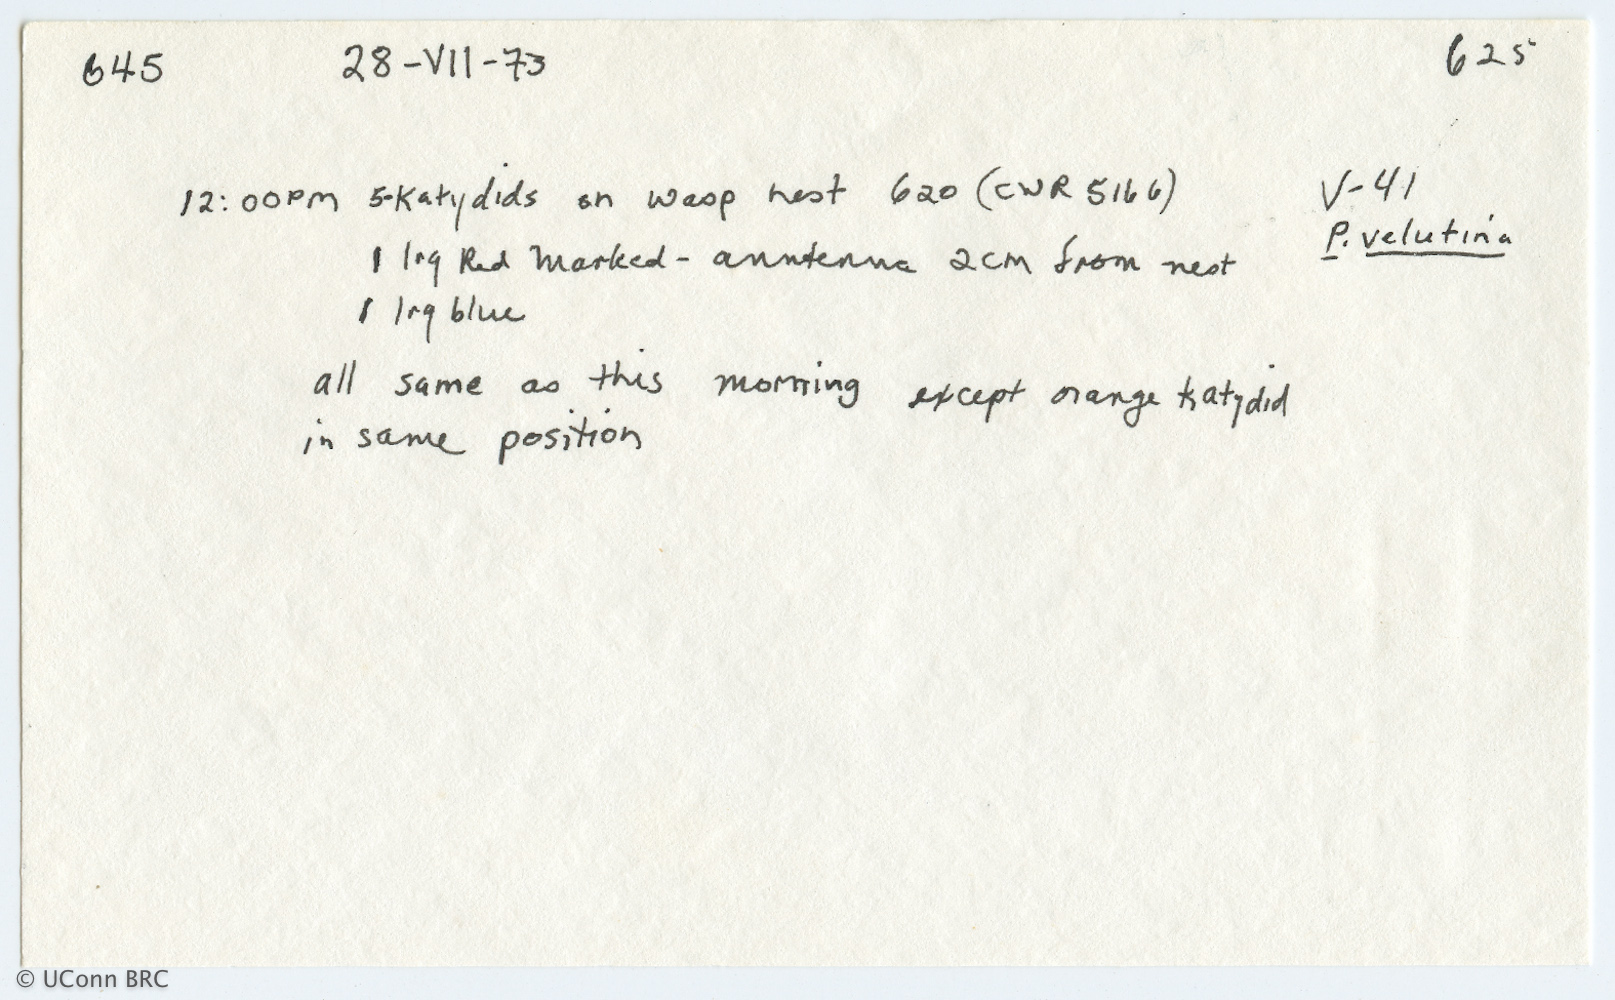 645 28-VII-73 625
12:00PM 5-Katydids on wasp nest 620 (CWR 5166) V-41
P. velutina
1 lrg Red Marked - anntenna 2cm from nest
1 lrg blue
all same as this morning except orange katydid
in same position
© UConn BRC